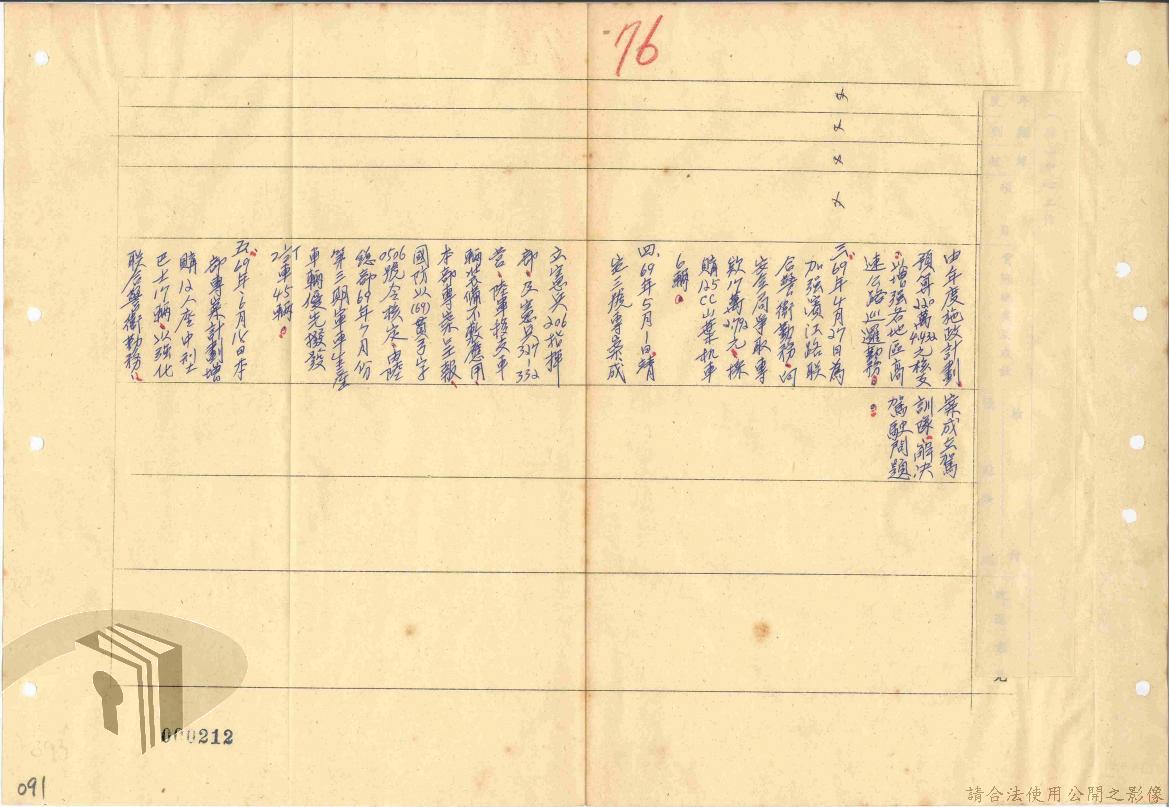 76
由年度施政計劃
預算220萬4432元核支
以增強各地區高
速公路巡邏勤務。
三、69年4月27日為
加強濱江路聯
合警衛勤務，向
安全局爭取專
款17萬2792元，採
購125CC山葉机車
6輛。
四、69年5月1日靖
安三號專案成
立憲兵206指揮
部，及憲兵327、332
營，陸車核支車
輛裝備不敷應用，
本部專案呈報，
國防以(69)賁字
0506號令核定，由陸
總部69年7月份
第三期軍車生產
車輛優先撥發
2½T車45輛。
五、69年6月16日本
部專案計劃增
購12人座中型
巴士17輛，以強化
聯合警衛勤務。
案成立駕
訓隊，解決
駕駛問題
。
000212
091
請合法使用公開之影像